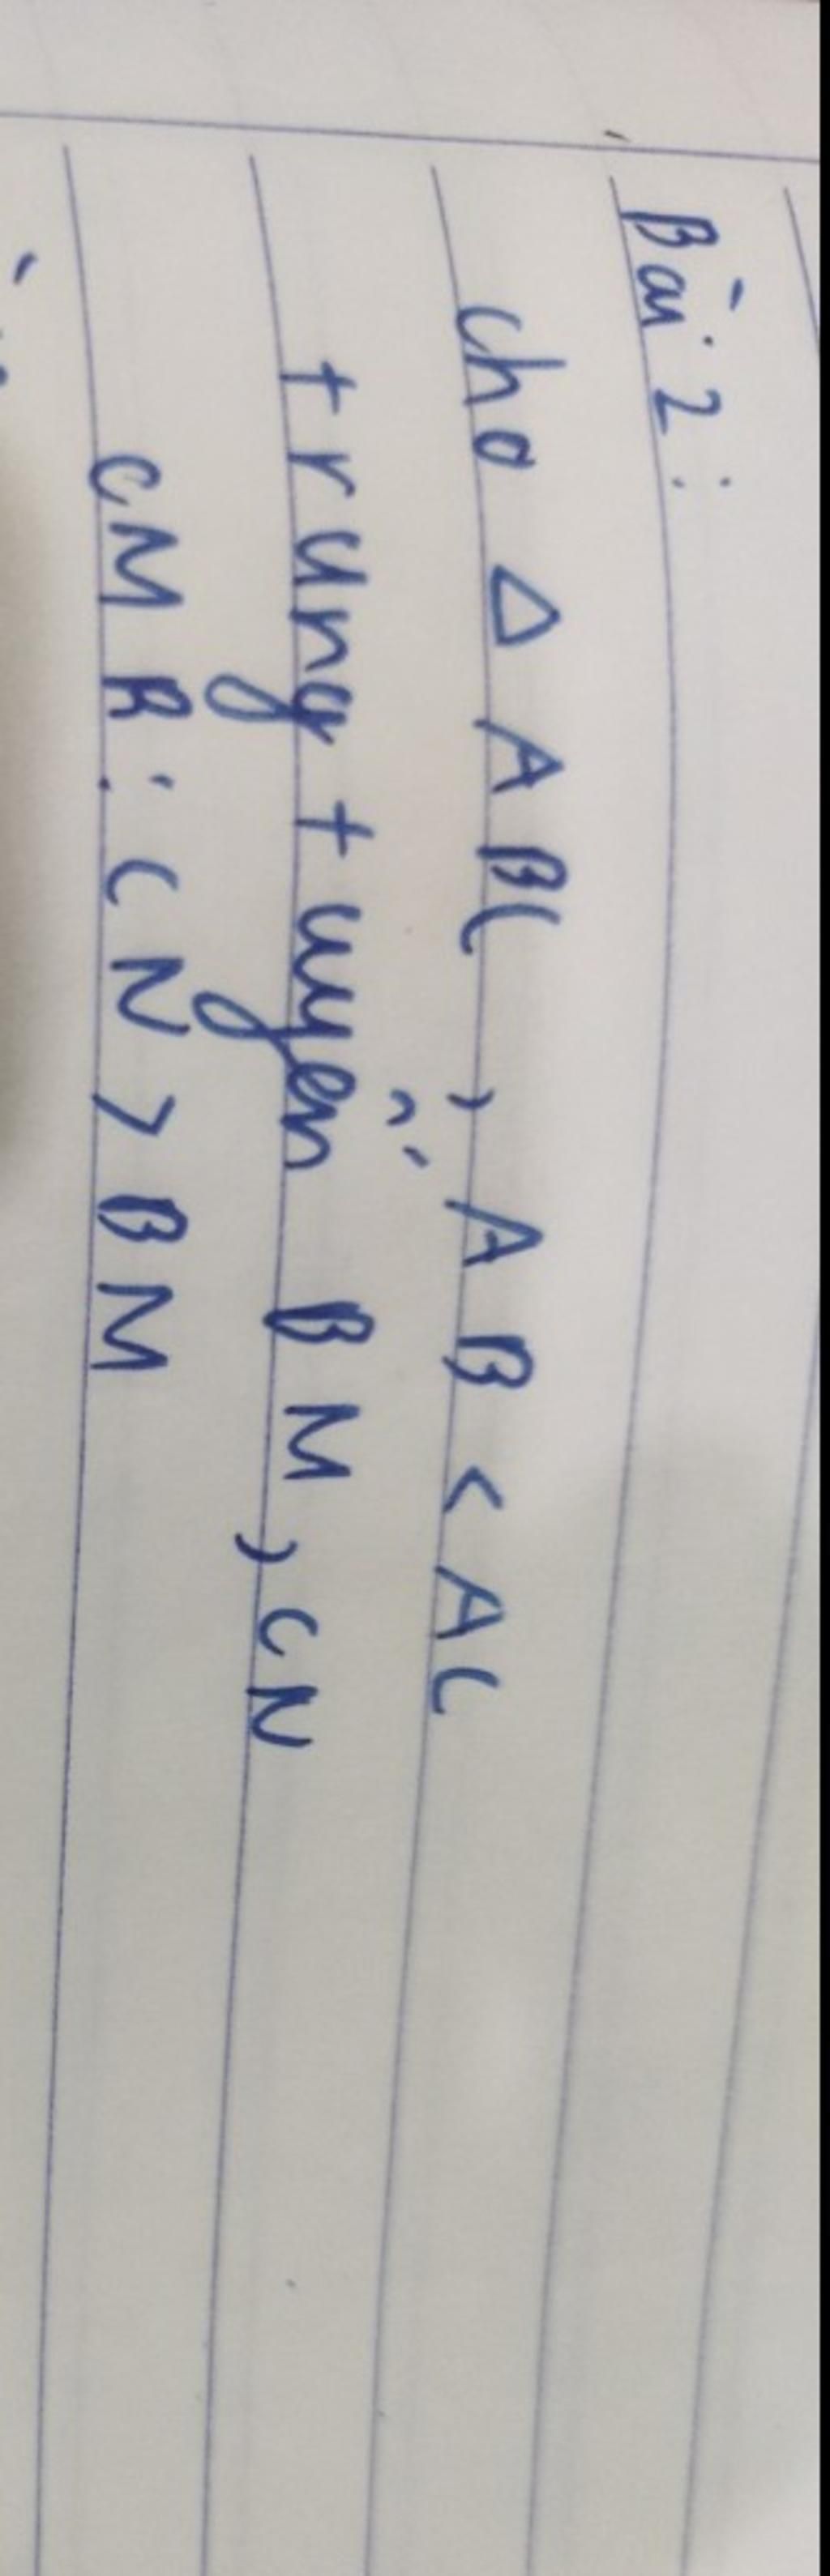 Bài 2:
cho Δ ABC, AB < AC
trung tuyến BM, CN
CMR: CN > BM